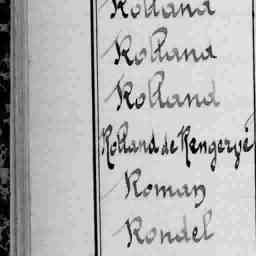 Rolland
Rolland
Rolland
Rolland de Rengervé
Roman
Rondel